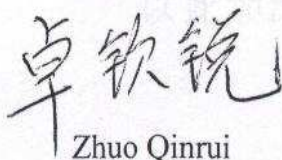 卓钦锐
Zhuo Qinrui